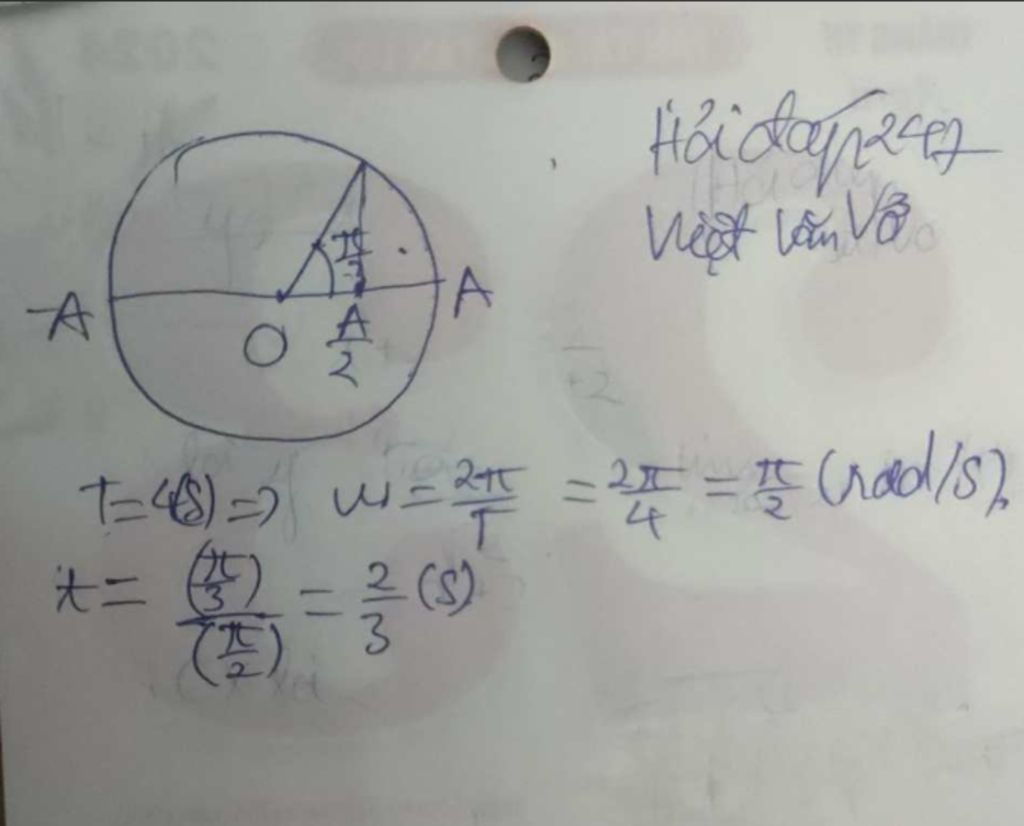 Hỏi đáp 247
Việt Văn Võ
π/3
-A
A
O
A/2
T = 4(s) => ω = 2π/T = 2π/4 = π/2 (rad/s).
t = (π/3)/(π/2) = 2/3 (s)